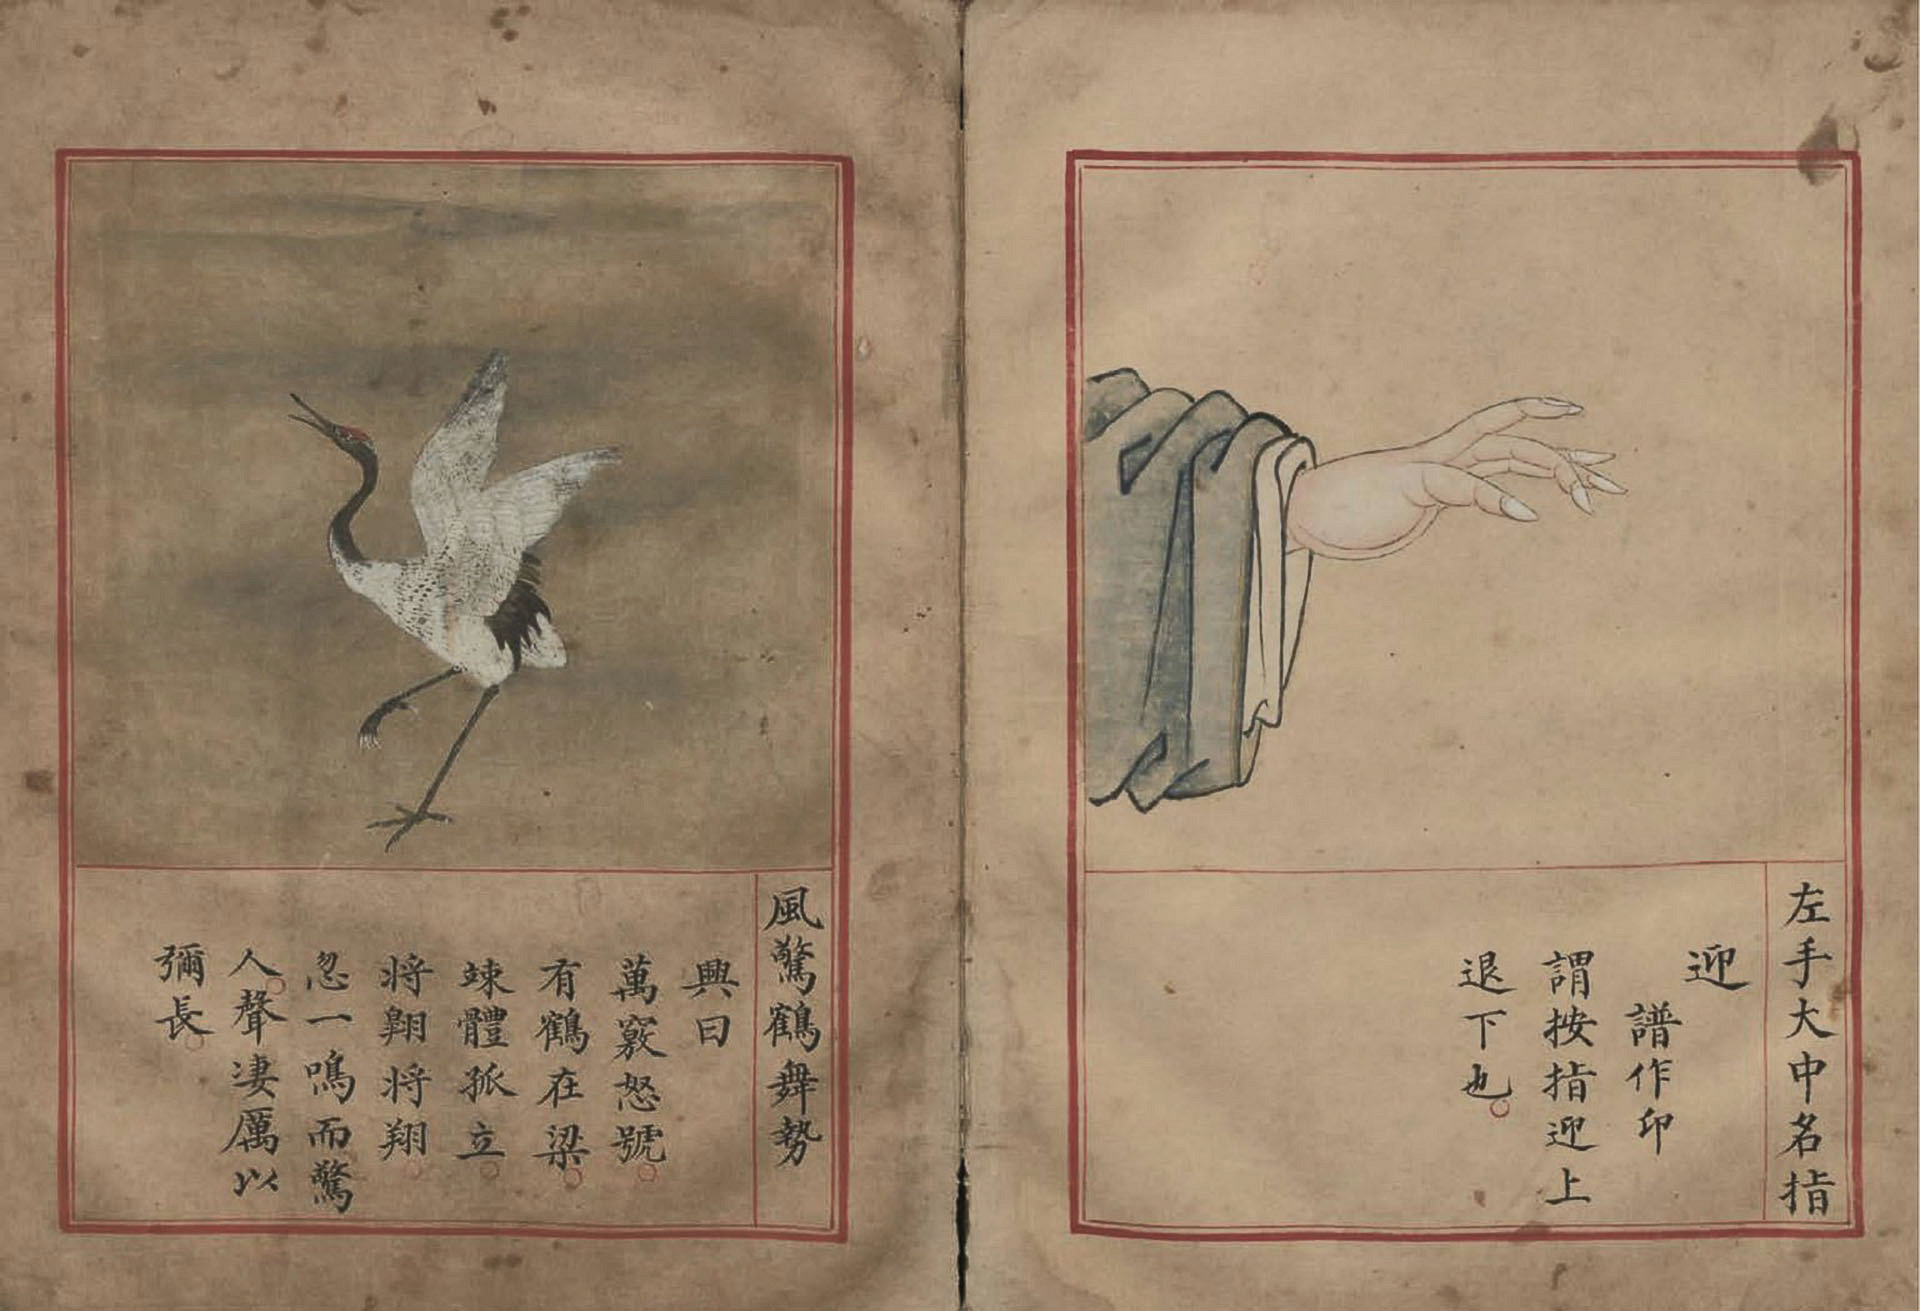 左手大中名指
迎
譜作印
謂按指迎上
退下也
風驚鶴舞勢
興曰
萬竅怒號
有鶴在梁
竦體孤立
將翺將翔
忽一鳴而驚
人聲淒厲以
彌長